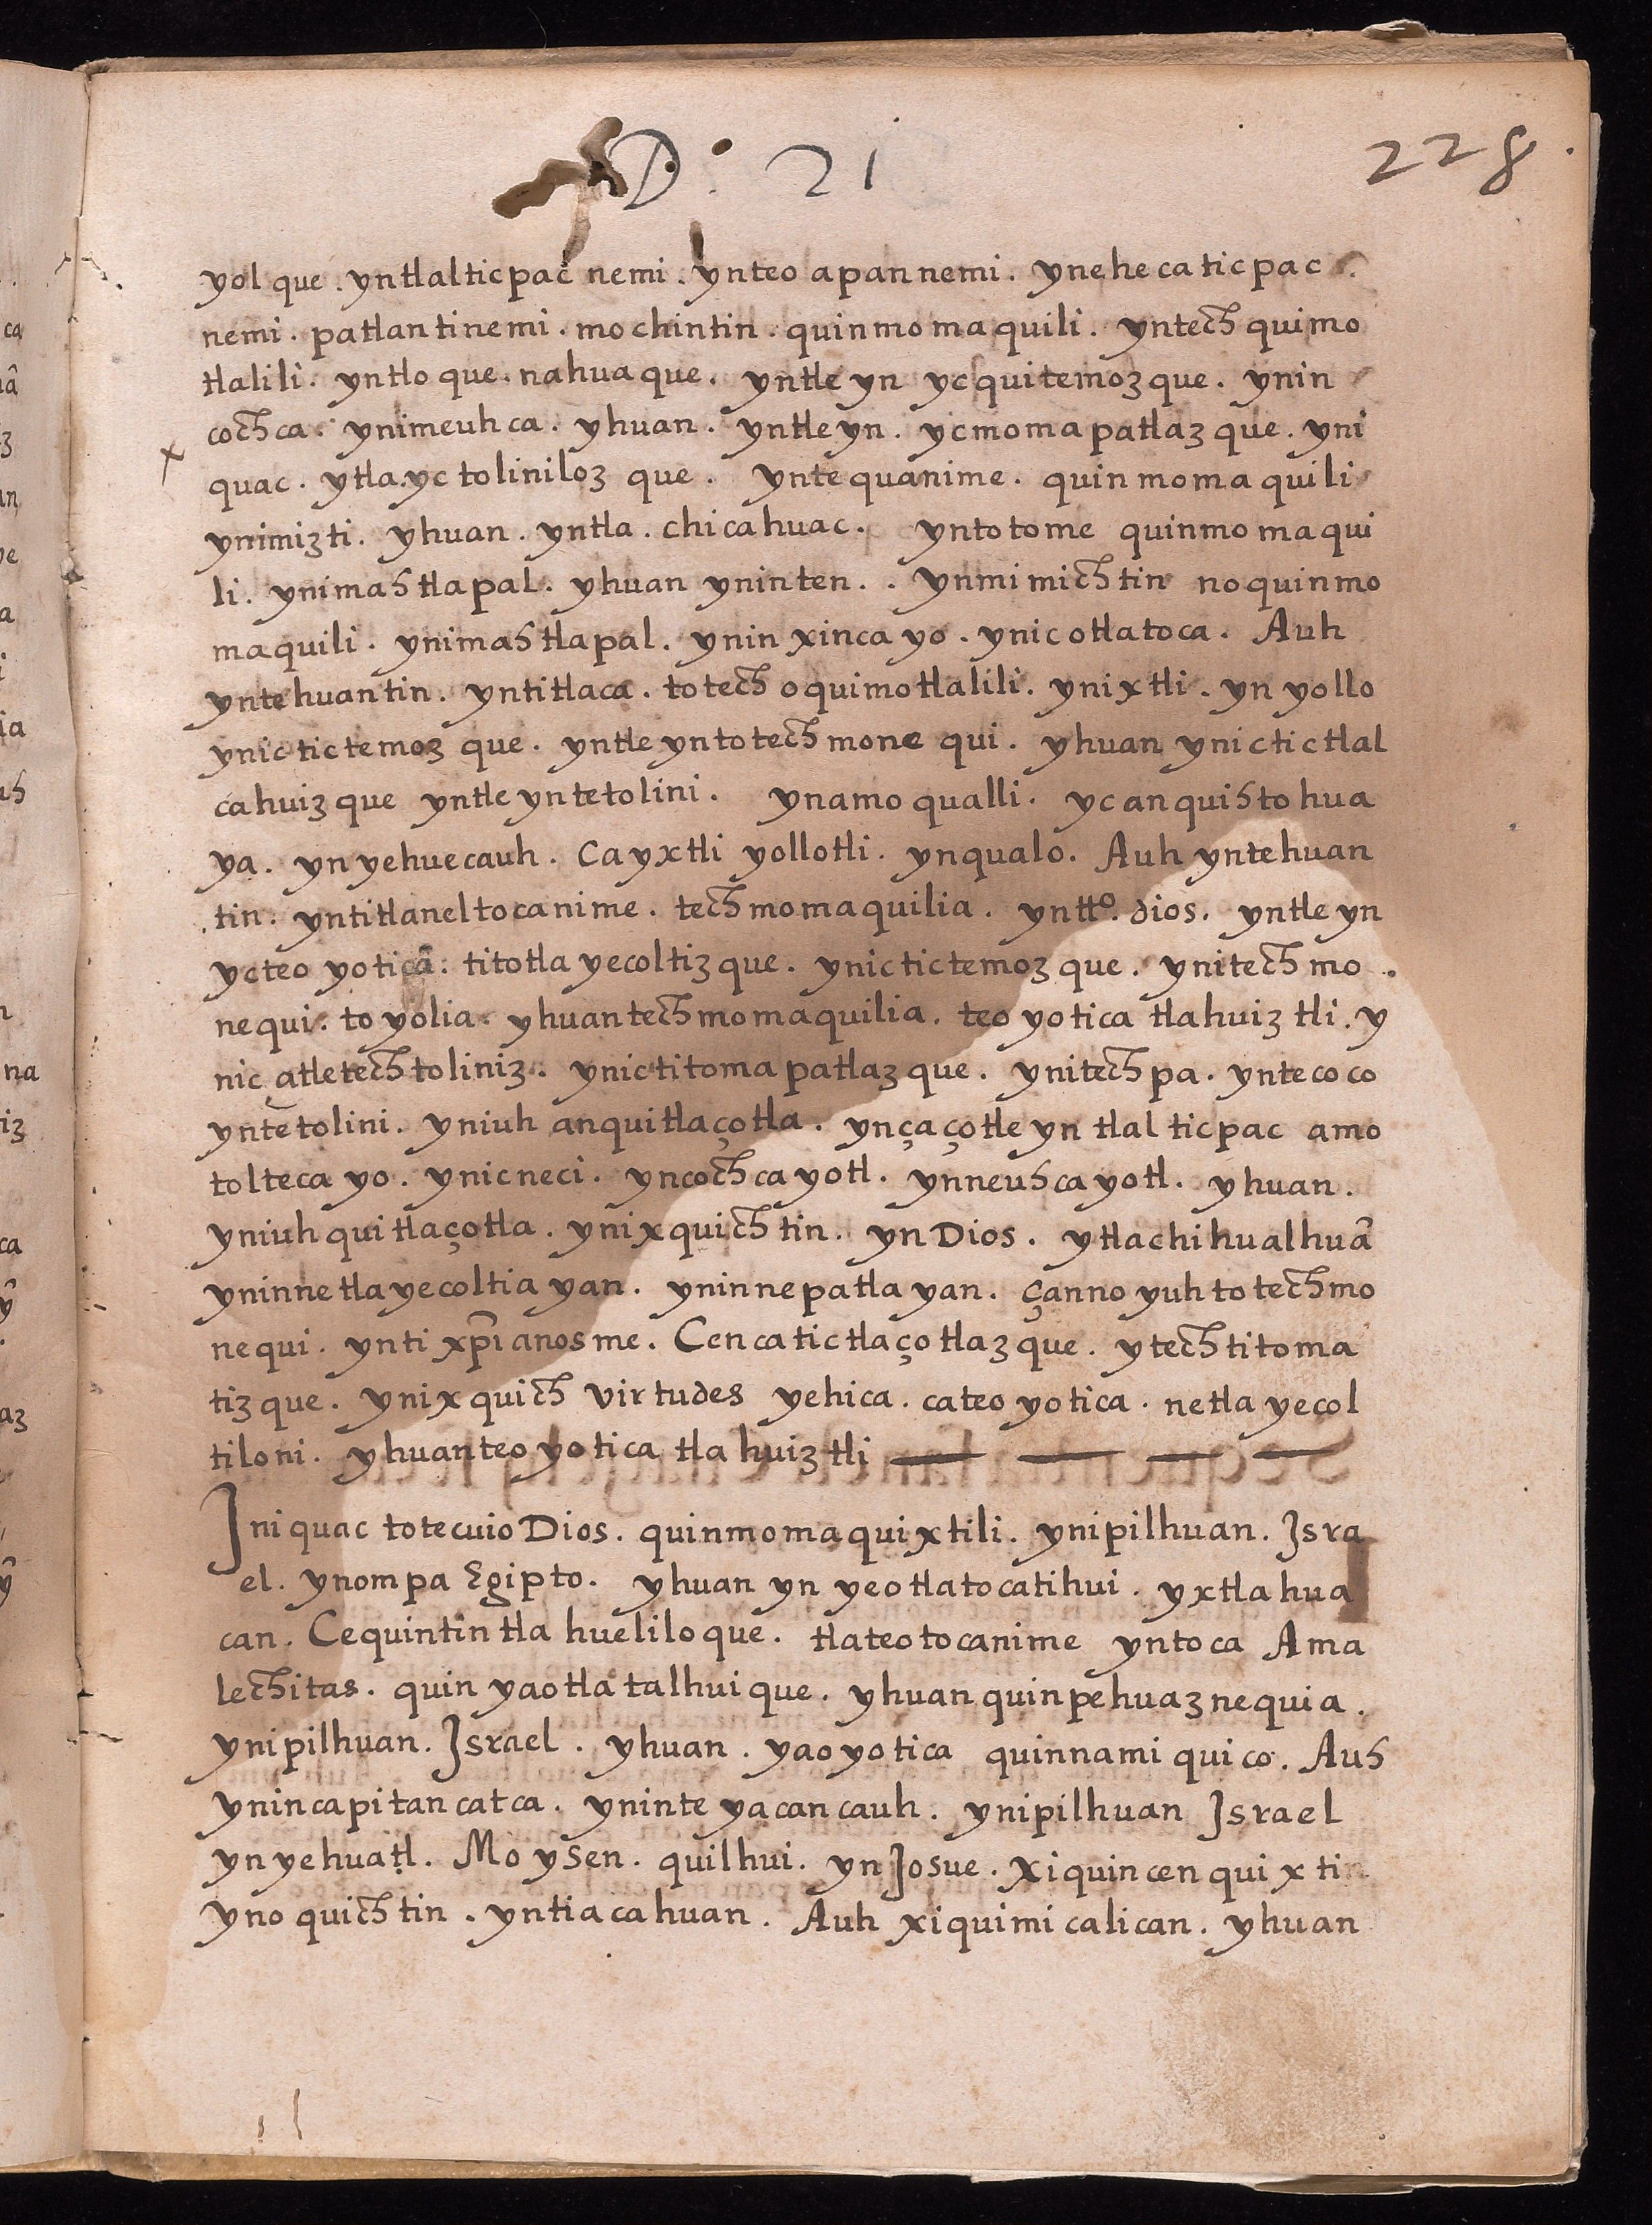 D: 21
228.
yol que. yntlalticpac nemi. ynteo apan nemi. ynehecaticpac
nemi. patlantinemi. mochintin. quinmomaquili. yntech quimo
tlalili. yntloque. nahuaque. yntle yn ycquitemozque. ynin
cochca. ynimeuhca. yhuan. yntleyn. ycmomapatlazque. yni
quac. ytla.yc toliniloz que. yntequanime. quinmomaquili
ynimizti. yhuan. yntla. chicahuac. yntotome quinmomaqui
li. ynimahtlapal. yhuan yninten.. ynmimichtin noquinmo
maquili. ynimahtlapal. yninxincayo. ynicotlatoca. Auh
yntehuantin. yntitlaca. totech oquimotlalili. ynixtli. yn yollo
ynictictemoz que. yntle yntotech monequi. yhuan ynictictlal
cahuizque yntle yntetolini. ynamo qualli. yc anquihtohua
ya. yn yehuecauh. Cayxtli yollotli. ynqualo. Auh yntehuan
tin. yntitlaneltocanime. techmomaquilia. yntto. dios. yntleyn
ycteo yoticā. titotlayecoltizque. ynictictemozque. ynitech mo.
nequi. toyolia. yhuantechmomaquilia. teoyotica tlahuiztli. y
nic çatletechtoliniz. ynictitomapatlazque. ynitechpa. yntecoco
yntetolini. yniuh anquitlaçotla. ynçaçotle yn tlalticpac amo
toltecayo. ynicneci. yncochcayotl. ynneuhcayotl. yhuan.
yniuhquitlaçotla. ynixquichtin. yn Dios. ytlachihualhuā
yninnetlayecoltiayan. yninnepatlayan. çanno yuh totechmo
nequi. ynti xp̄ianosme. Cencatictlaçotlazque. ytechtitoma
tizque. ynixquich virtudes yehica. cateoyotica. netlayecol
tiloni. yhuanteoyotica tlahuiztli
Iniquac totecuio Dios. quinmomaquixtili. ynipilhuan. Isra
el. ynompa Egipto. yhuan yn yeotlatocatihui. yxtlahua
can. Cequintin tlahueliloque. tlateotocanime yntoca Ama
lechitas. quin yaotlatalhuique. yhuanquinpehuaznequia.
ynipilhuan. Israel. yhuan. yaoyotica quinnamiquico. Auh
ynincapitancatca. yninteyacancauh. ynipilhuan Israel
yn yehuatl. Moysen. quilhui. yn Josue. xiquincenquixti
ynoquichtin. yntiacahuan. Auh xiquimicalican. yhuan